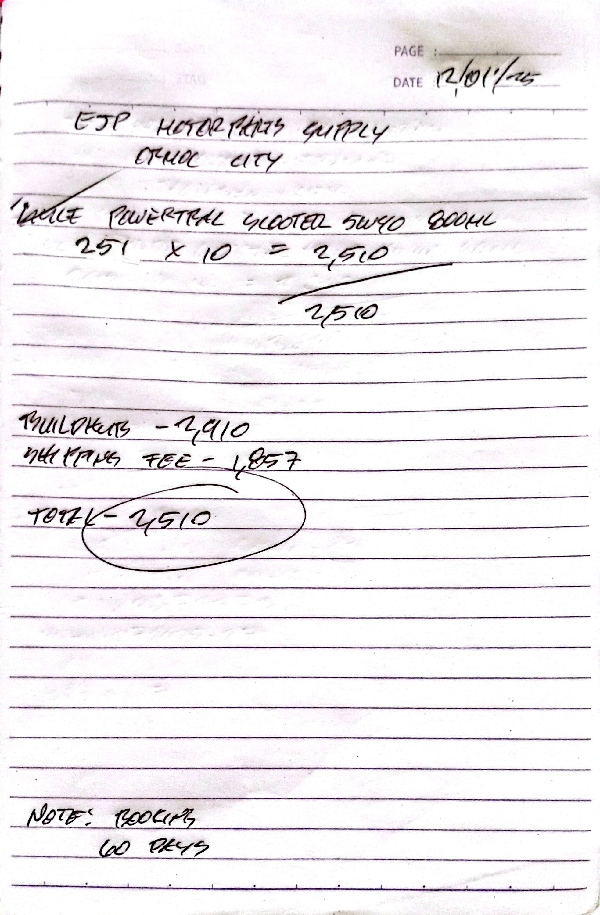 PAGE :
DATE 12/01/25
EJP MOTORPARTS SUPPLY
ORMOC CITY
POWERTRAC SCOOTER 5W40 800ML
251 x 10 = 2,510
2,510
- 2,910
SHIPPING FEE - 1,857
TOTAL - 2,510
NOTE: BOOKING
60 DAYS